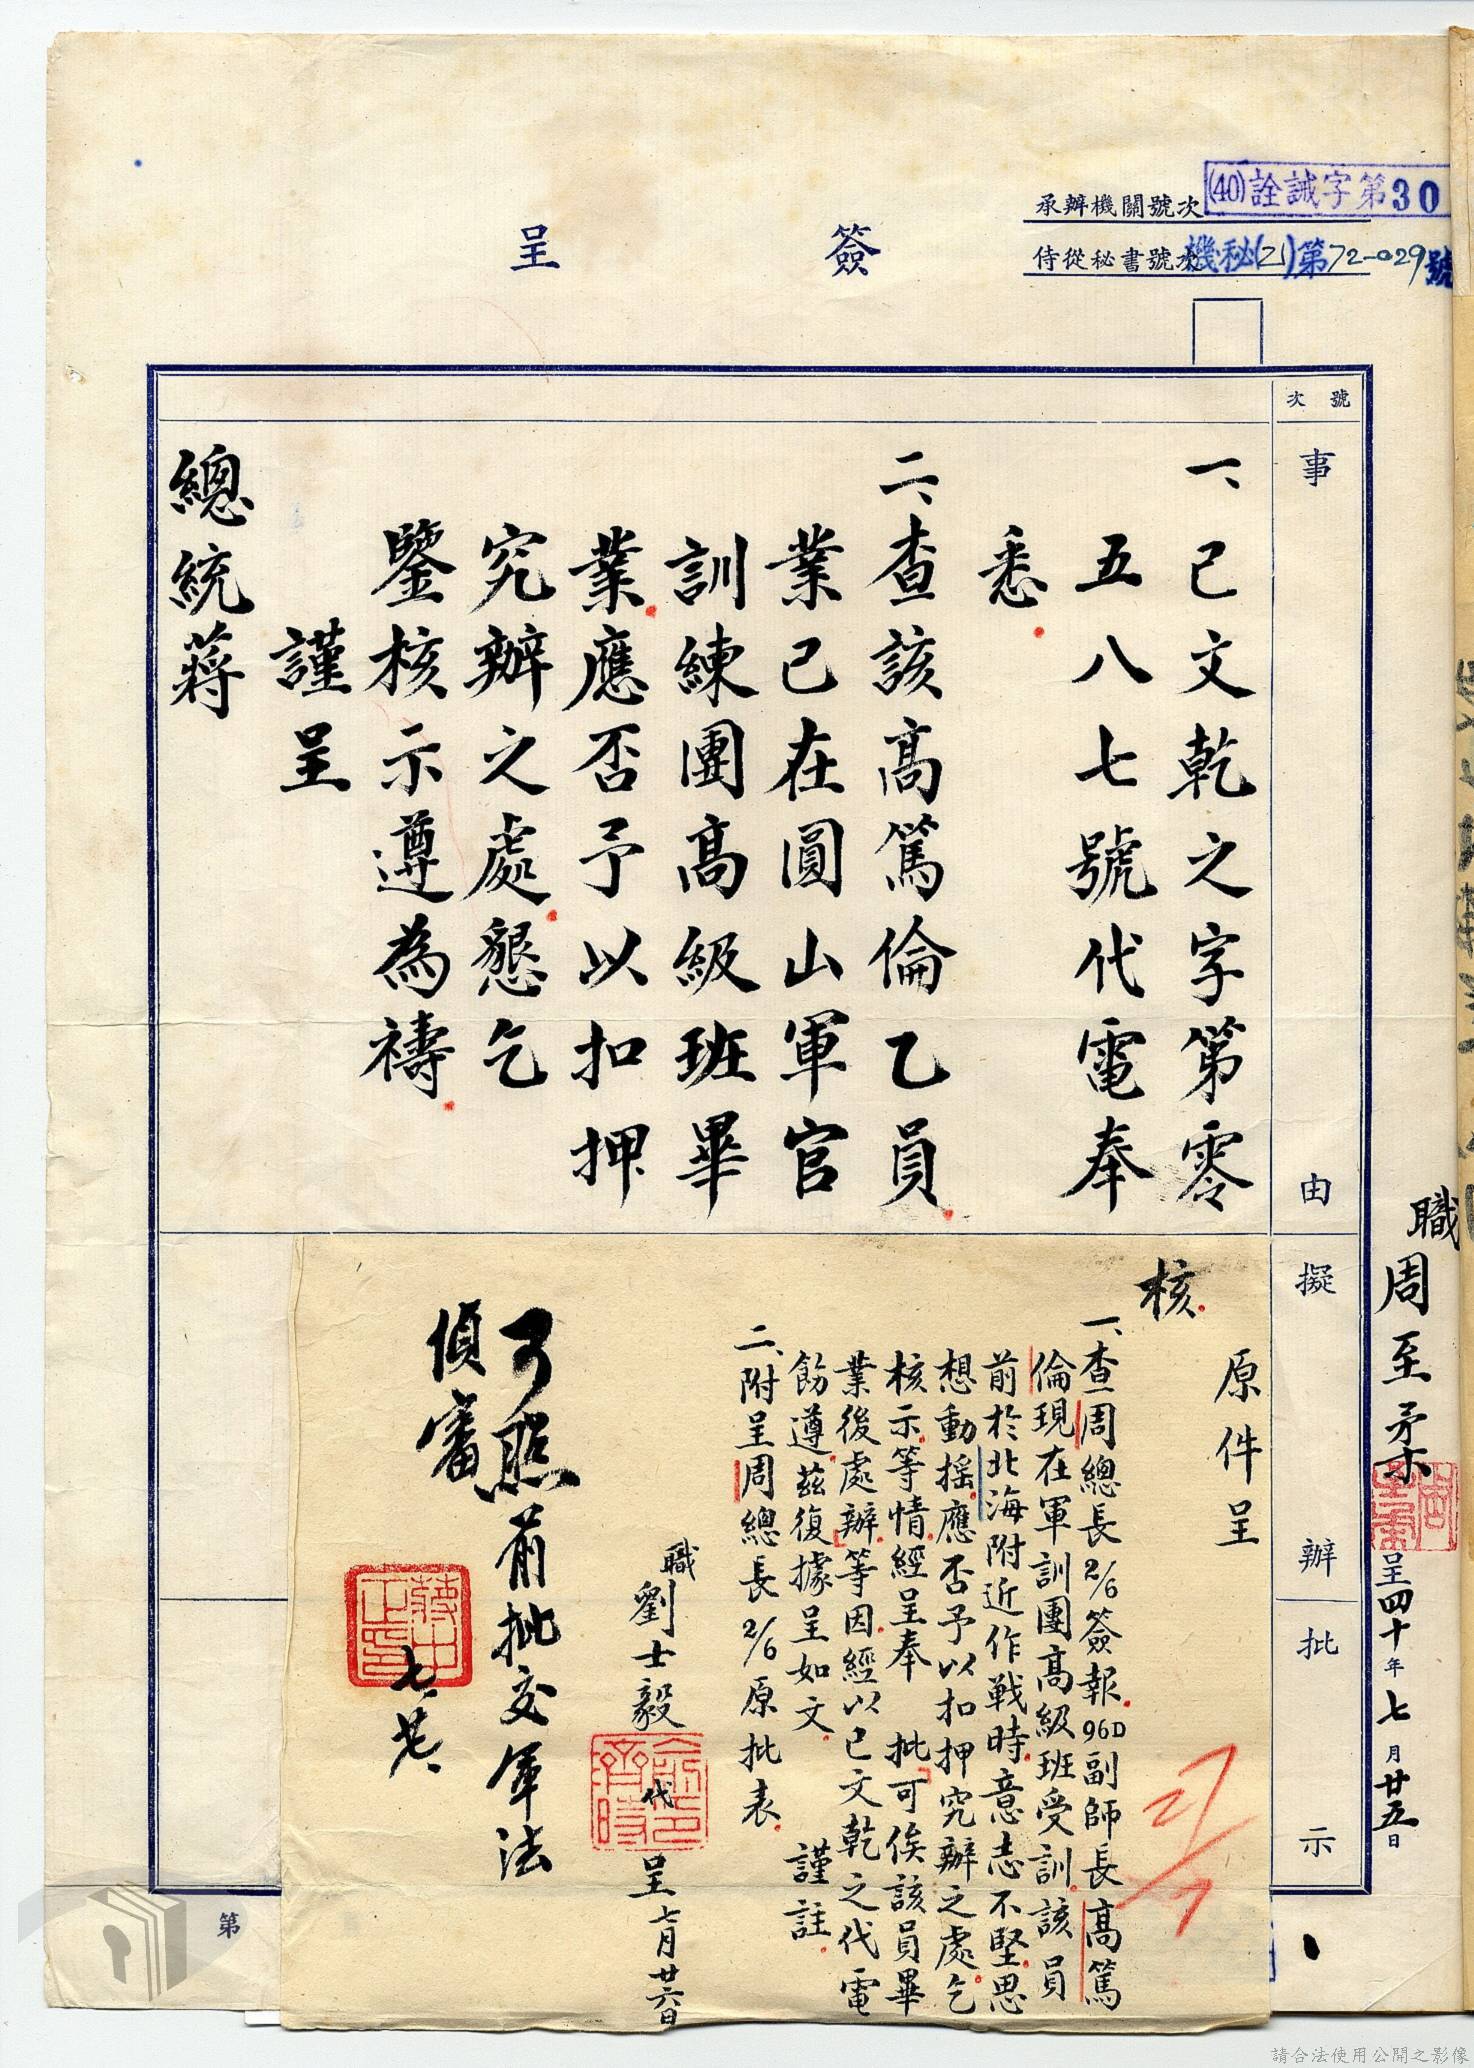 承辦機關號次
(40)詮誠字第30
侍從秘書號次
機秘(21)第72-029號
簽呈
號次
事由
擬辦
批示
一、已文乾之字第零
五八七號代電奉
悉
二、查該高篤倫乙員
業已在圓山軍官
訓練團高級班畢
業應否予以扣押
究辦之處懇乞
鑒核示遵為禱
謹呈
總統蔣
職周至柔
呈四十年七月廿五日
原件呈
核
一、查周總長2/6簽報96D副師長高篤
倫現在軍訓團高級班受訓該員
前於北海附近作戰時意志不堅思
想動搖應否予以扣押究辦之處乞
核示等情經呈奉 批可俟該員畢
業後處辦等因經以已文乾之代電
飭遵茲復據呈如文 謹註
二、附呈周總長2/6原批表
職劉士毅代呈七月廿六日
可照前批交軍法
偵審
七、廿、
第
請合法使用公開之影像